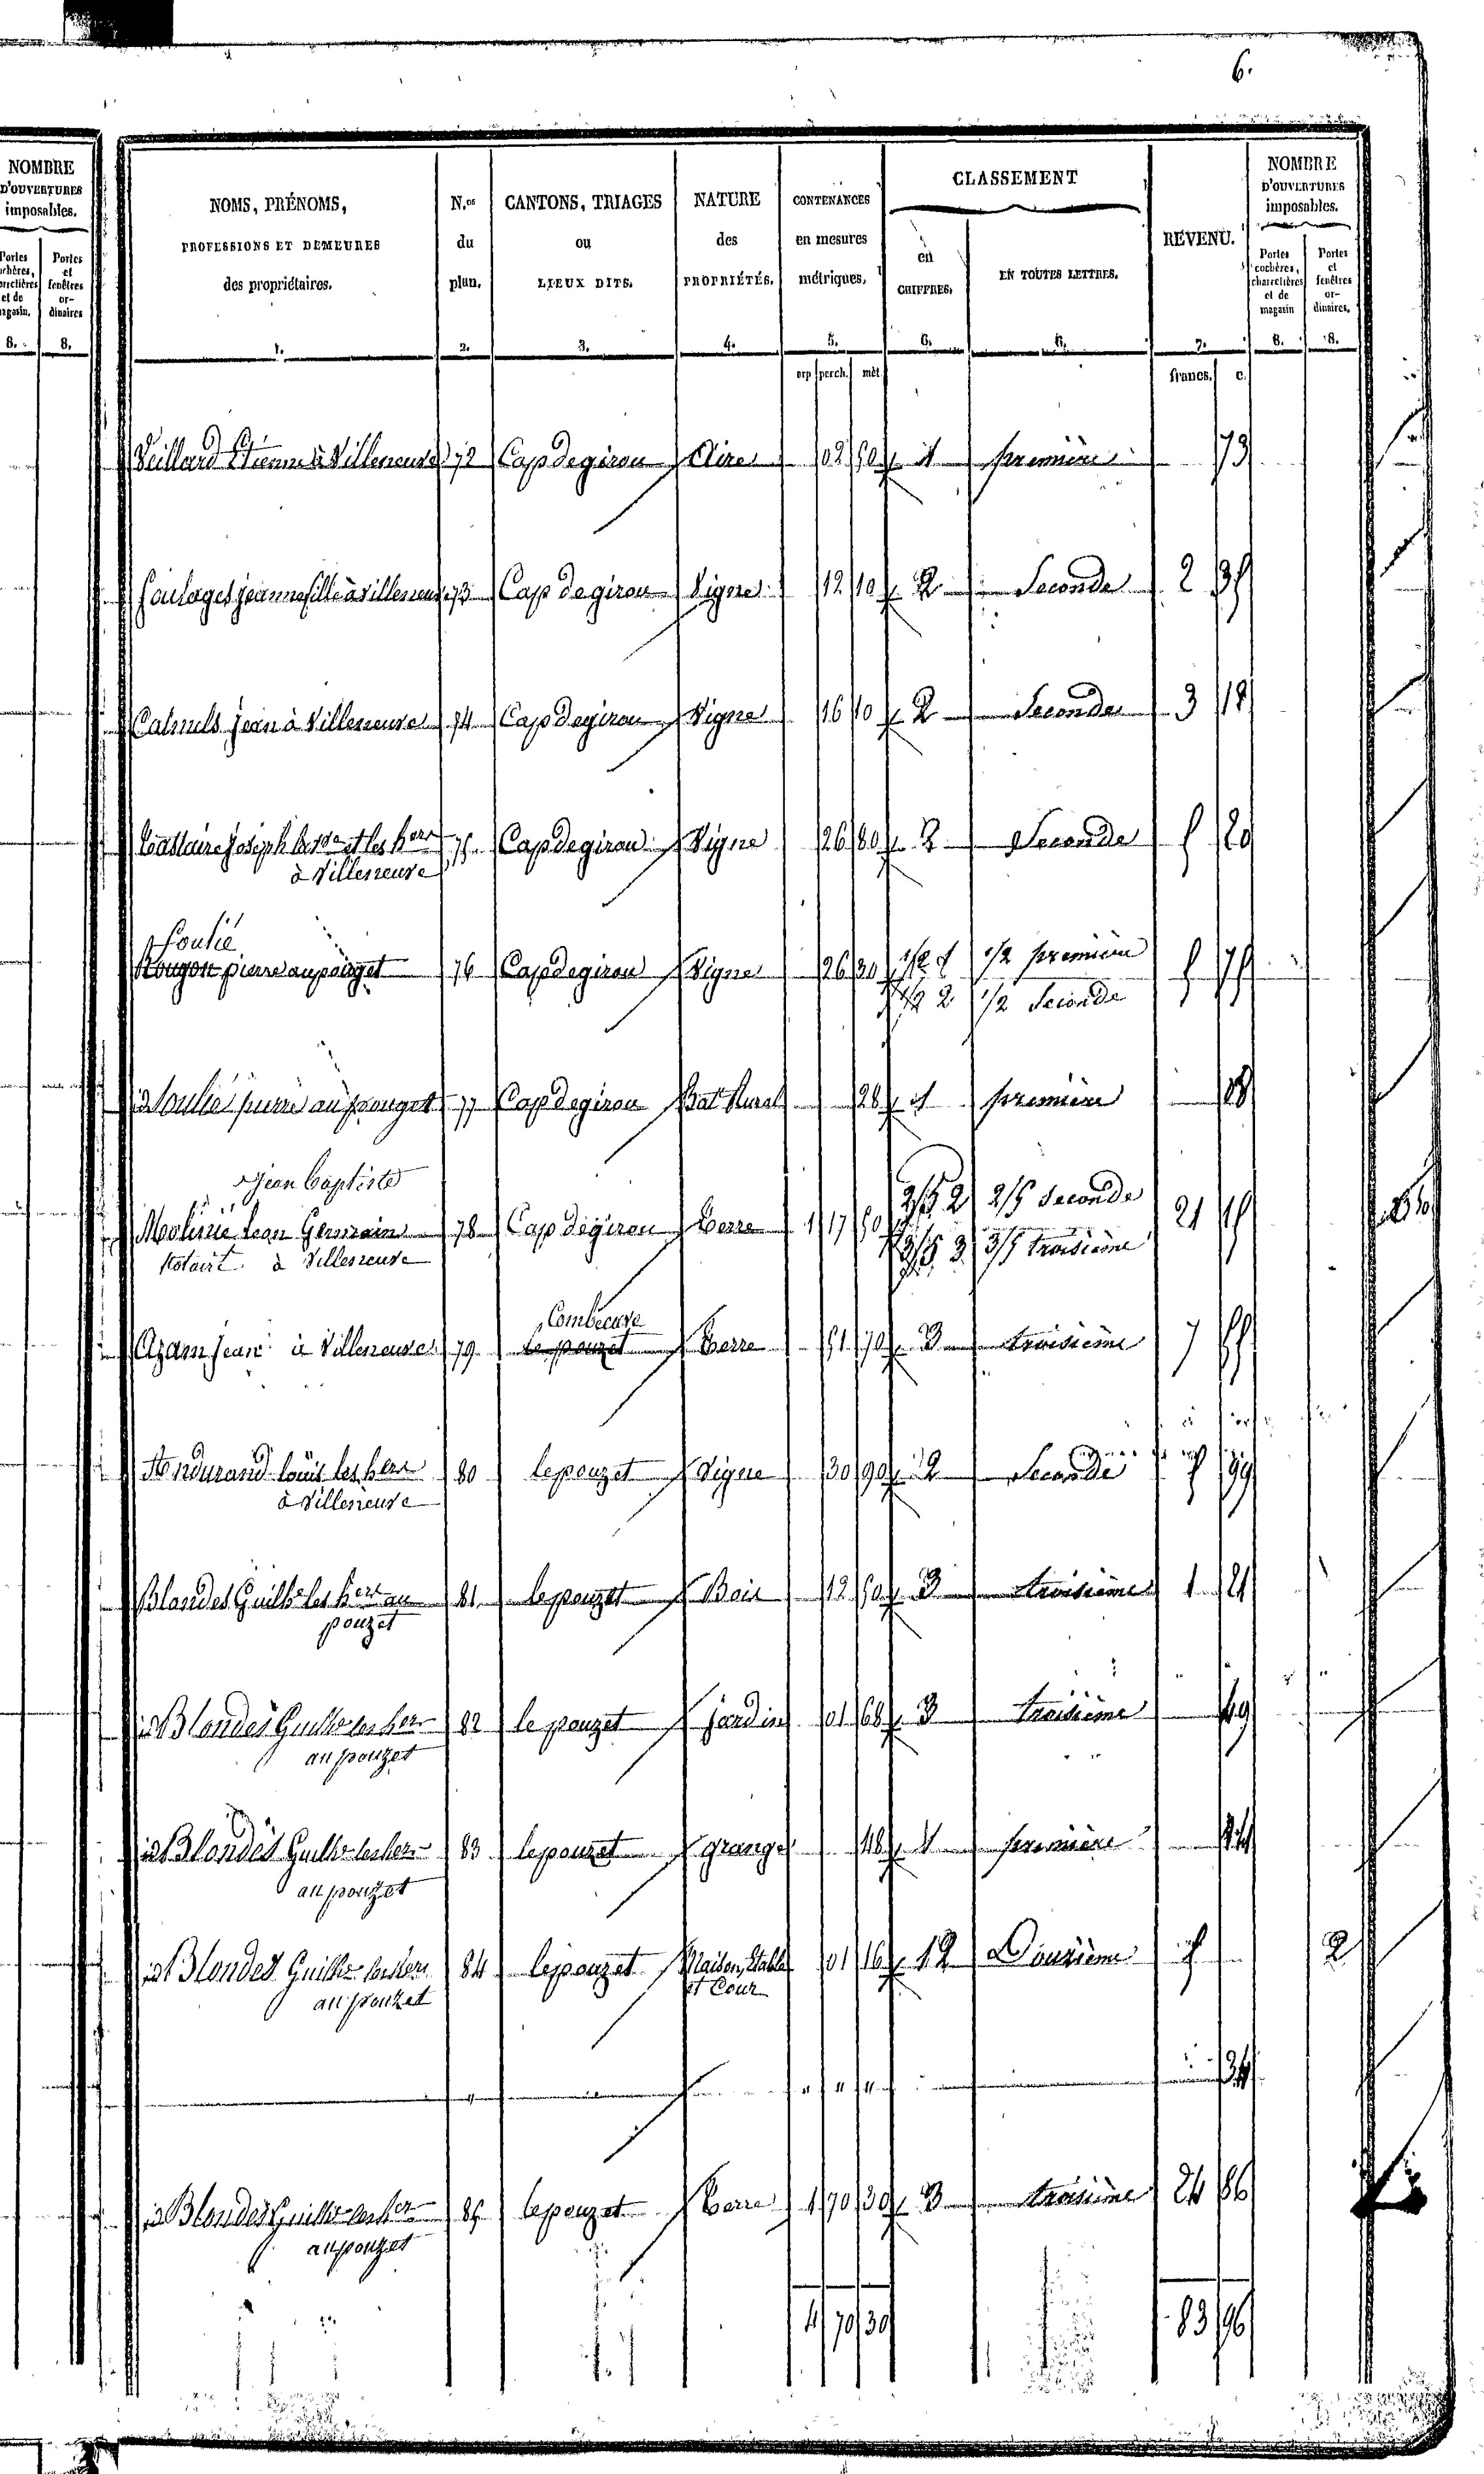 6.
NOMBRE
D'OUVERTURES
imposables.
Portes et fenêtres or-dinaires
8. 8.
NOMS, PRÉNOMS,
PROFESSIONS ET DEMEURES
des propriétaires.
N.os du plan.
CANTONS, TRIAGES
ou
LIEUX DITS.
NATURE
des
PROPRIÉTÉS.
CONTENANCES
en mesures
métriques.
CLASSEMENT
en CHIFFRES.
EN TOUTES LETTRES.
REVENU.
NOMBRE
D'OUVERTURES
imposables.
Portes cochères, charretières et de magasin
Portes et fenêtres or-dinaires.
1. 2. 3. 4. 5. 6. 6. 7. 8. 8.
arp perch. mèt. francs. c.
Etienne à Villeneuve 72 Cap de girou Aire 02 50 1 première 73
jeanne fille à villeneuve 73 Cap de girou Vigne 12 10 2 Seconde 2 35
Calmels jean à Villeneuve 74 Cap de girou Vigne 16 10 2 Seconde 3 12
Joseph la ve et les hers 75 Cap de girou Vigne 26 80 2 Seconde 5 20
à Villeneuve
Soulié
Rougon pierre au pouget 76 Cap de girou Vigne 26 20 1/2 1 1/2 première 5 75
1/2 2 1/2 Seconde
id Soulié pierre au pouget 77 Cap de girou Bat Rural 28 1 première 08
Jean Baptiste
Molinié Leon Germain 78 Cap de girou Terre 1 17 50 2/5 2 2/5 Seconde 21 15
Notaire à Villeneuve 3/5 3 3/5 troisième
Combecave
Azam Jean à Villeneuve 79 le pouzet Terre 51 70 3 troisième 7 55
Andurand louis les hers 80 le pouzet Vigne 30 90 2 Seconde 5 99
à Villeneuve
Blondes Guille les hers au 81 le pouzet Bois 12 50 3 troisième 1 21
pouzet
id Blondes Guille les hers 82 le pouzet jardin 01 68 3 troisième 49
au pouzet
id Blondes Guille les hers 83 le pouzet grange 48 1 première 14
au pouzet
id Blondes Guille les hers 84 le pouzet Maison, Etable 01 16 12 Douzième 5 2
au pouzet et Cour
" " " " 34
id Blondes Guille les hers 85 le pouzet Terre 1 70 30 3 troisième 24 86
au pouzet
4 70 30 83 96